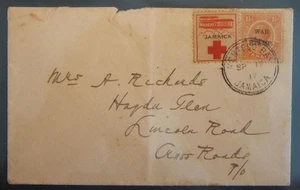 JAMAICA
WAR
JAMAICA
17
Mrs A. Richards
Haydn Glen
Lincoln Road
Cross Roads
P/O